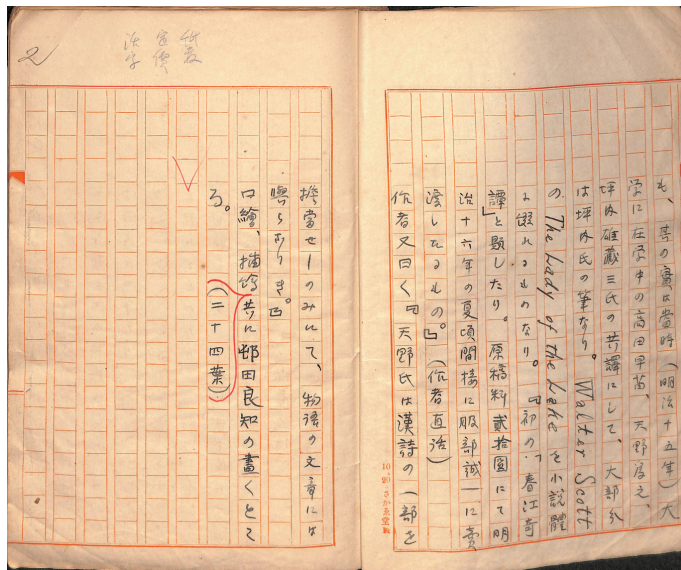 も、其の實は當時（明治十五年）大
学に在学中の高田早苗、天野為之、
坪内雄藏三氏の共譯にして、大部分
は坪内氏の筆なり。Walter Scott
の The Lady of the Lake を小説體
に綴れるものなり。『初の「春江奇
譚」と題したり。原稿料貳拾圓にて明
治十六年の夏頃間接に服部誠一に賣
渡したるもの。』（作者直話）
作者又曰く『天野氏は漢詩の一部を
10, 20 さかゑ堂製
擔當せしのみにて、物語の文章には
與らありき。』
口繪、挿繪共に邨田良知の畫くとこ
ろ。
（二十四葉）
定價
活字
2